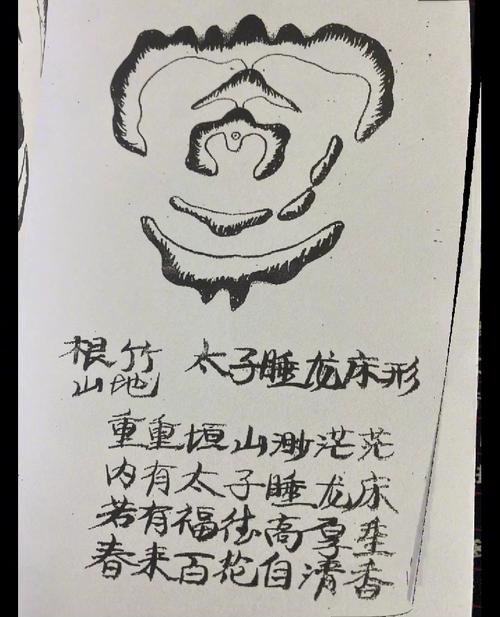 根竹 太子睡龙床形
山地
重重垣山渺茫茫
内有太子睡龙床
若有福德高享坐
春来百花自清香